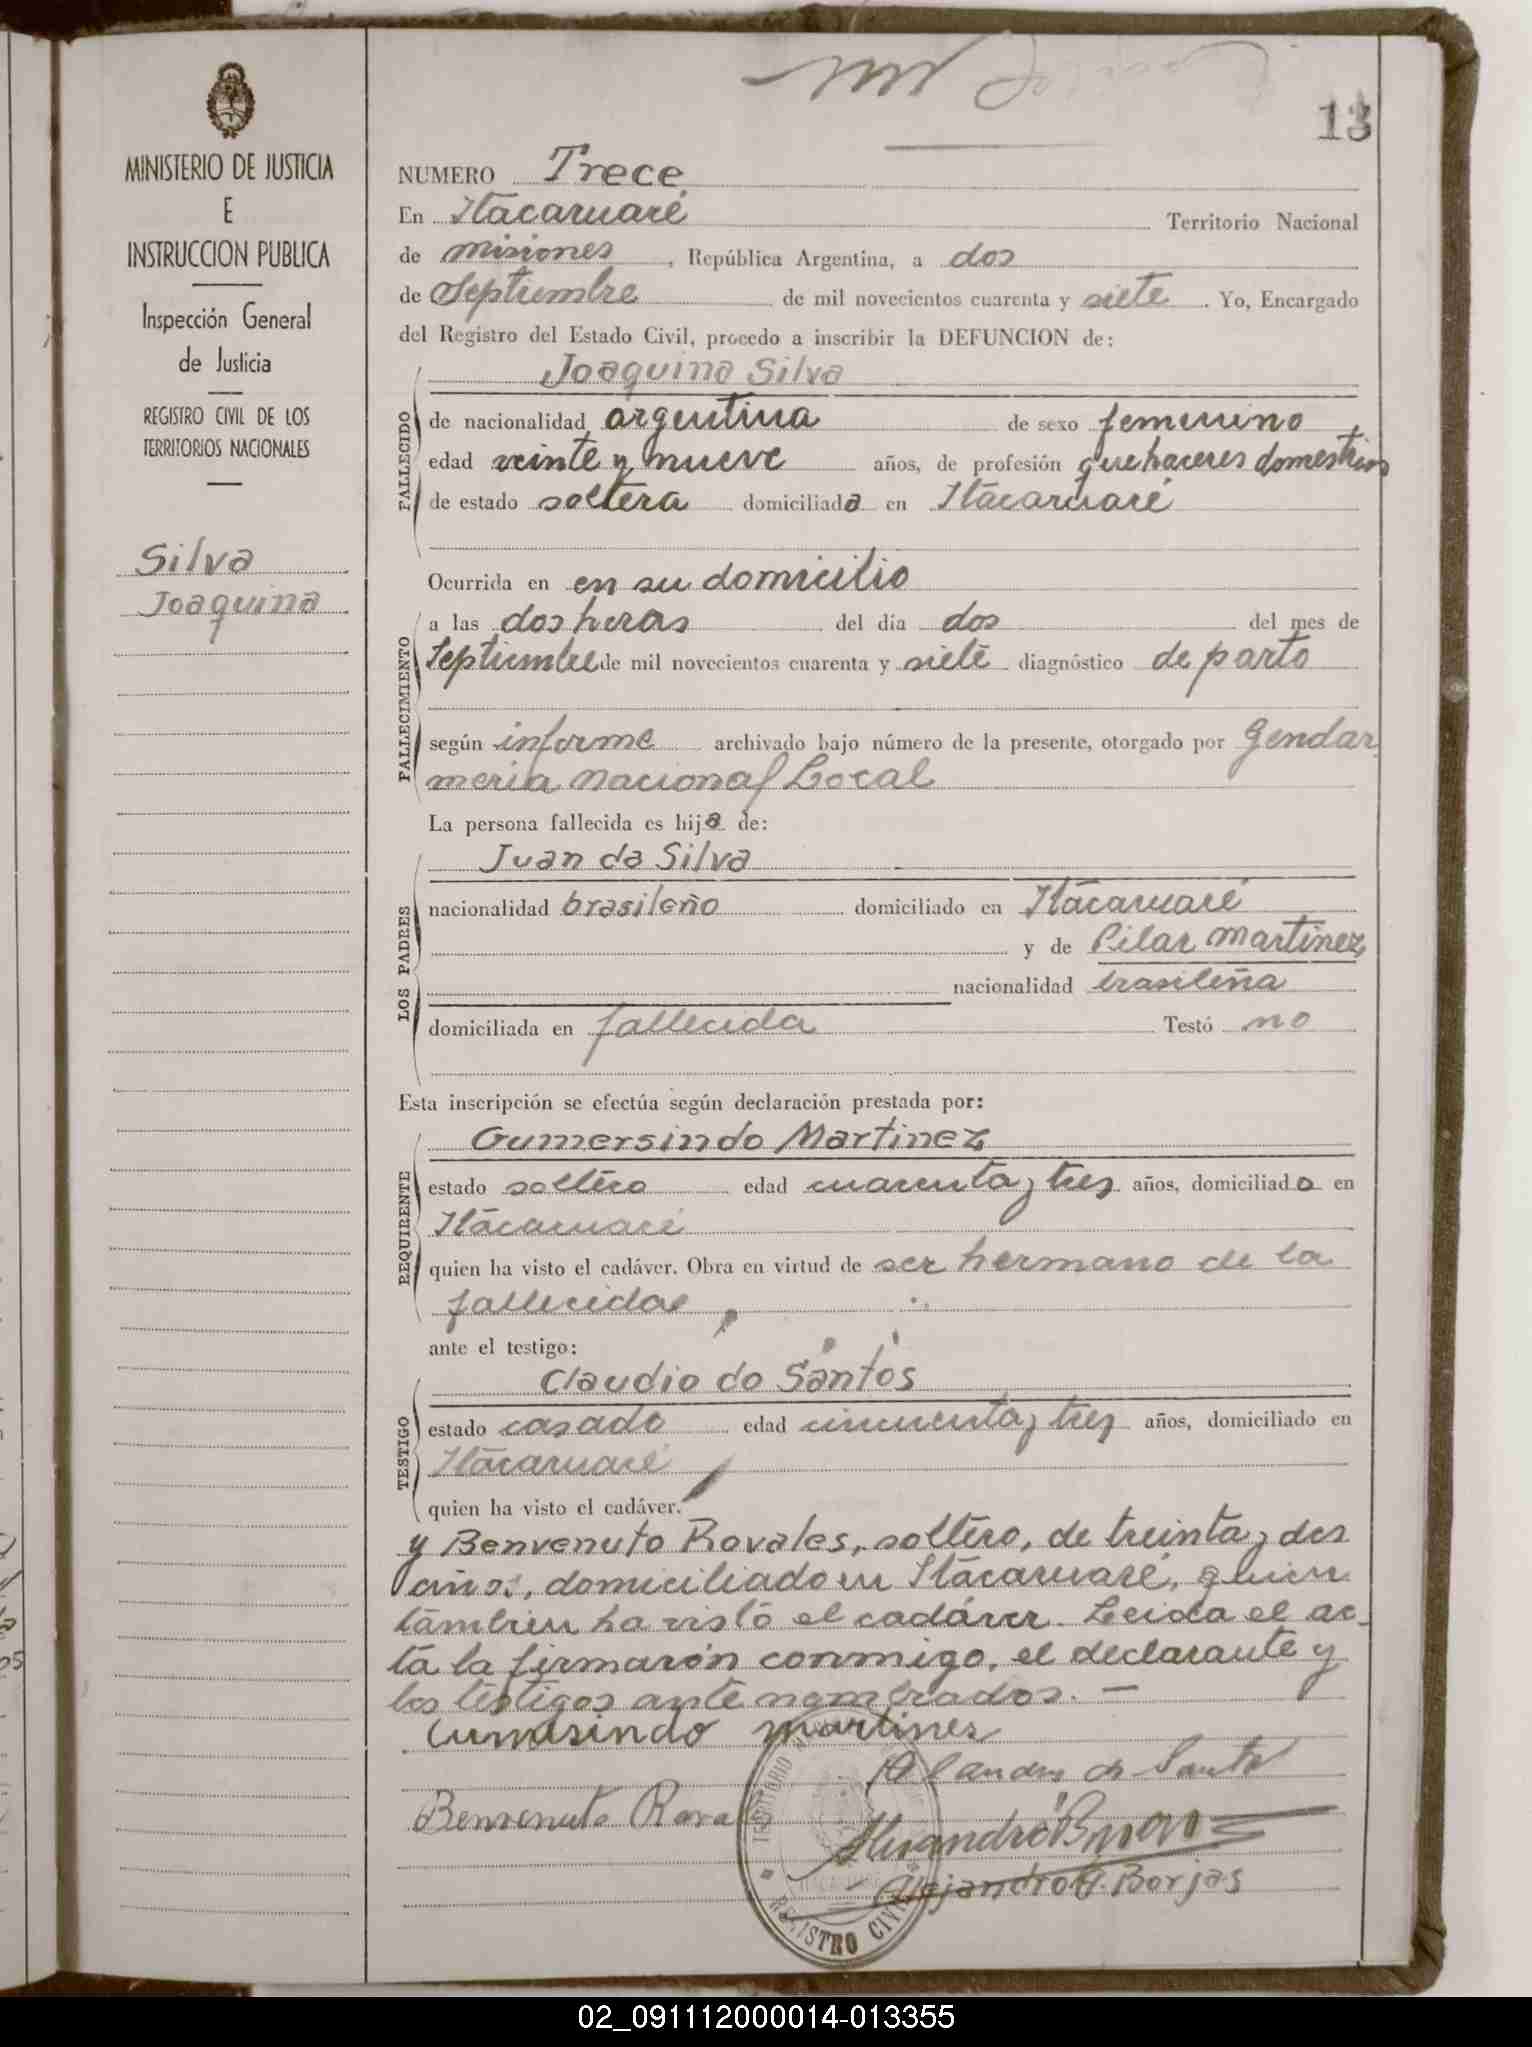 13
MINISTERIO DE JUSTICIA
E
INSTRUCCION PUBLICA
Inspección General
de Justicia
REGISTRO CIVIL DE LOS
TERRITORIOS NACIONALES
Silva
Joaquina
NUMERO Trece
En Itacaruaré Territorio Nacional
de misiones, República Argentina, a dos
de Septiembre de mil novecientos cuarenta y siete. Yo, Encargado
del Registro del Estado Civil, procedo a inscribir la DEFUNCION de:
Joaquina Silva
FALLECIDO
de nacionalidad argentina de sexo femenino,
edad veinte y nueve años, de profesión quehaceres domestricos
de estado soltera domiciliada en Itacaruaré
Ocurrida en en su domicilio
FALLECIMIENTO
a las dos horas del día dos del mes de
Septiembre de mil novecientos cuarenta y siete diagnóstico de parto
según informe archivado bajo número de la presente, otorgado por Gendar
meria nacional Local
La persona fallecida es hija de:
LOS PADRES
Juan da Silva
nacionalidad brasileño domiciliado en Itacaruaré
y de Pilar Martinez,
nacionalidad brasileña
domiciliada en fallecida Testó no
Esta inscripción se efectúa según declaración prestada por:
REQUIRENTE
Gumersindo Martinez
estado soltero edad cuarenta y tres años, domiciliado en
Itacaruaré
quien ha visto el cadáver. Obra en virtud de ser hermano de la
fallecida
ante el testigo:
TESTIGO
Claudio do Santos
estado casado edad cincuenta y tres años, domiciliado en
Itacaruaré
quien ha visto el cadáver.
y Benvenuto Rovales, soltero, de treinta y dos
años, domiciliado en Itacaruaré, quien
tambien ha visto el cadáver. Leida el ac-
ta la firmarón conmigo, el declarante y
los testigos ante nombrados. —
Cumersindo martines
Benvenuto Rova
Alejandro A. Borjas
TERRITORIO
REGISTRO CIVIL
02_091112000014-013355